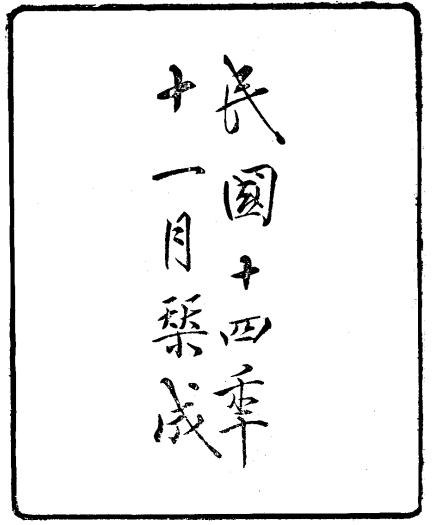 民國十四秊
十一月栞成